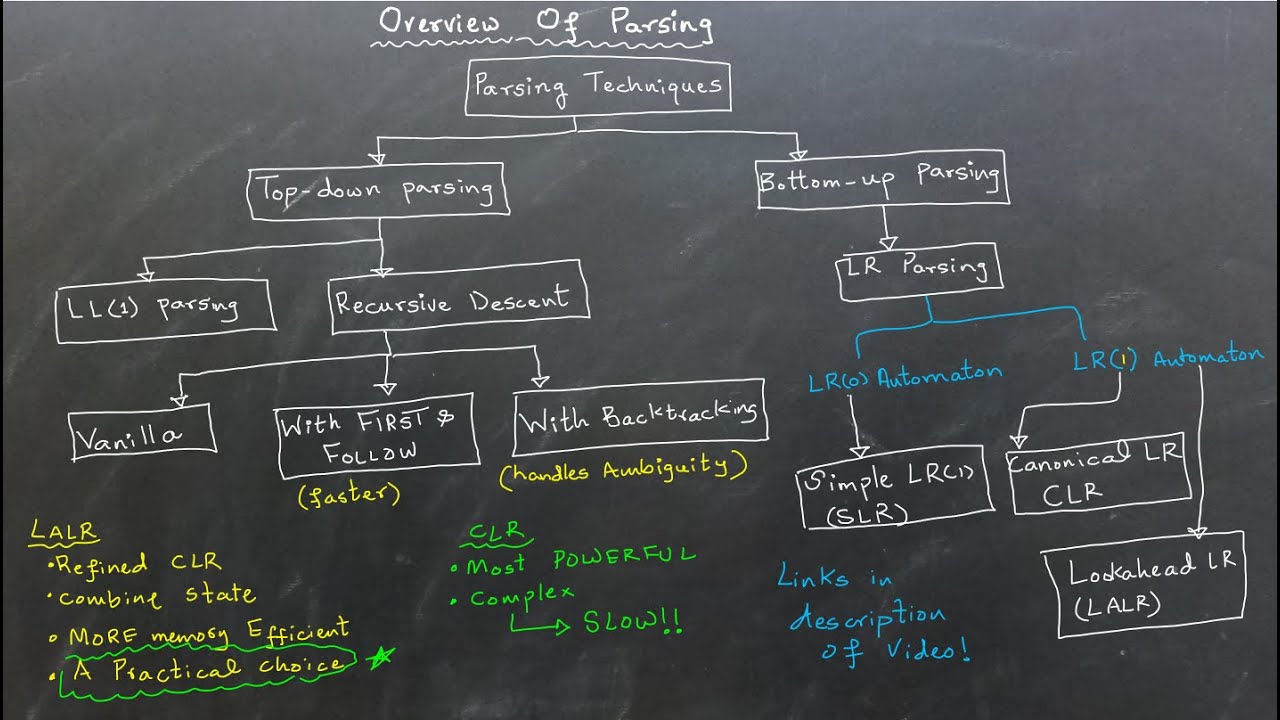 Overview Of Parsing
Parsing Techniques
Top-down parsing
Bottom-up Parsing
LL(1) parsing
Recursive Descent
LR Parsing
LR(0) Automaton
LR(1) Automaton
Vanilla
With FIRST &
FOLLOW
(faster)
With Backtracking
(handles Ambiguity)
Simple LR(1)
(SLR)
Canonical LR
CLR
Lookahead LR
(LALR)
LALR
• Refined CLR
• Combine State
• MORE memory Efficient
• A Practical choice
CLR
• Most POWERFUL
• Complex
SLOW!!
Links in
description
of Video!